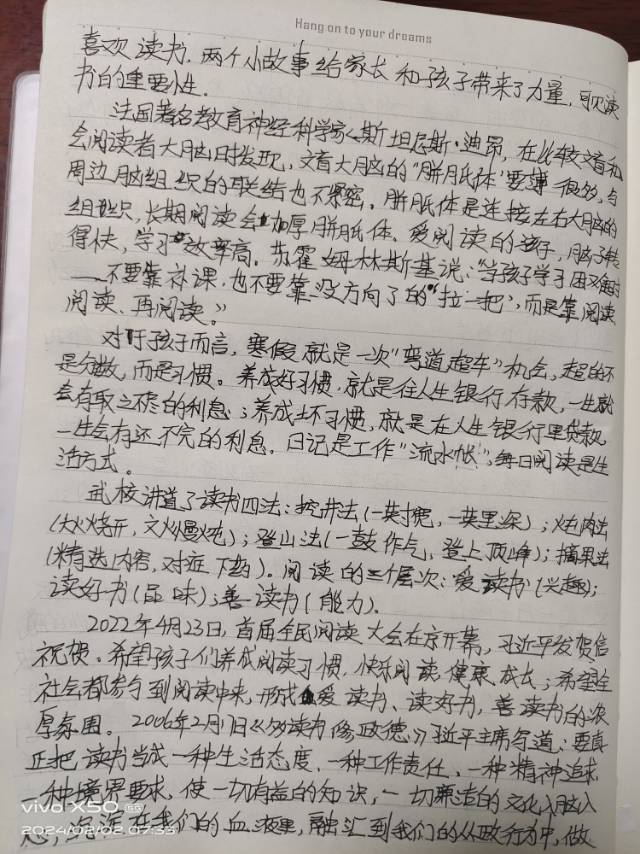 Hang on to your dreams
喜欢读书。两个小故事给家长和孩子带来了力量,可见读
书的重要性。
法国著名教育神经科学家斯坦尼斯·迪昂,在比较文盲和
会阅读者大脑时发现,文盲大脑的“胼胝体”要薄很多,与
周边脑组织的联结也不紧密。胼胝体是连接左右大脑的
组织,长期阅读会加厚胼胝体。爱阅读的孩子,脑子转
得快,学习效率高。苏霍姆林斯基说:“当孩子学习困难时
——不要靠补课,也不要靠没方向了的“拉一把”,而是靠阅读
阅读、再阅读。”
对于孩子而言,寒假就是一次“弯道超车”机会,超的不
是分数,而是习惯。养成好习惯,就是往人生银行存款,一生就
会有取之不尽的利息;养成坏习惯,就是在人生银行里贷款
一生会有还不完的利息。日记是工作“流水帐”,每日阅读是生
活方式。
武校讲道了读书四法:挖井法(一英寸宽,一英里深);炖肉法
(大火烧开,文火慢炖);登山法(一鼓作气,登上顶峰);摘果法
(精选内容,对症下药)。阅读的三个层次:爱读书(兴趣);
读好书(品味);善读书(能力)。
2022年4月23日,首届全民阅读大会在京开幕,习近平发贺信
祝贺。希望孩子们养成阅读习惯,快乐阅读,健康成长;希望全
社会都参与到阅读中来,形成爱读书、读好书,善读书的浓
厚氛围。2006年2月17日《多读书修政德》习近平主席写道:要真
正把读书当成一种生活态度、一种工作责任、一种精神追求、
一种境界要求,使一切有益的知识,一切廉洁的文化入脑入
心,沉淀在我们的血液里,融汇到我们的从政行为中,做
vivo X50 5G
2024/02/02 07:33